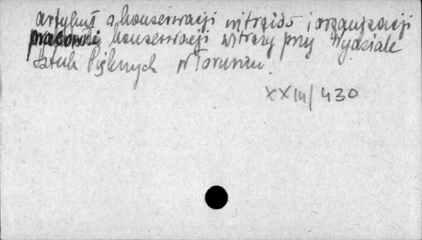 artykuł o konserwacji witrażów i organizacji
pracowni konserwacji witraży przy Wydziale
Sztuk Pięknych w Toruniu.
XXIII/430